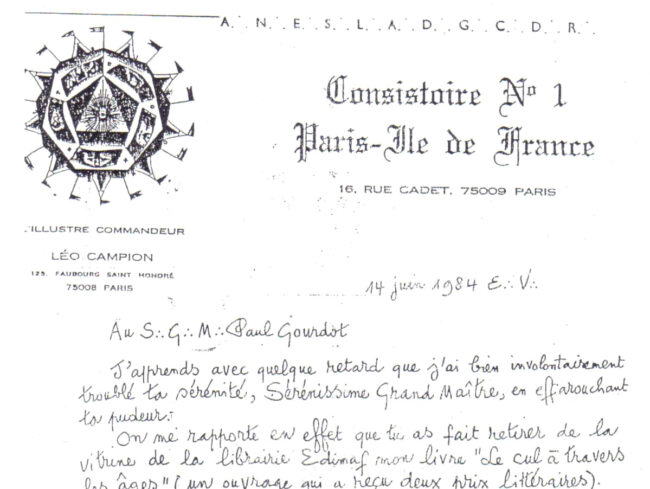 A∴ N∴ E∴ S∴ L∴ A∴ D∴ G∴ C∴ D∴ R∴
Consistoire Nº 1
Paris-Ile de France
16, RUE CADET, 75009 PARIS
L'ILLUSTRE COMMANDEUR
LÉO CAMPION
125, FAUBOURG SAINT HONORÉ
75008 PARIS
14 juin 1984 E∴ V∴
Au S∴ G∴ M∴ Paul Gourdot
J'apprends avec quelque retard que j'ai bien involontairement
troublé ta sérénité, Sérénissime Grand Maître, en effarouchant
ta pudeur.
On me rapporte en effet que tu as fait retirer de la
vitrine de la librairie Edimaf mon livre "Le cul à travers
les âges" (un ouvrage qui a reçu deux prix littéraires).